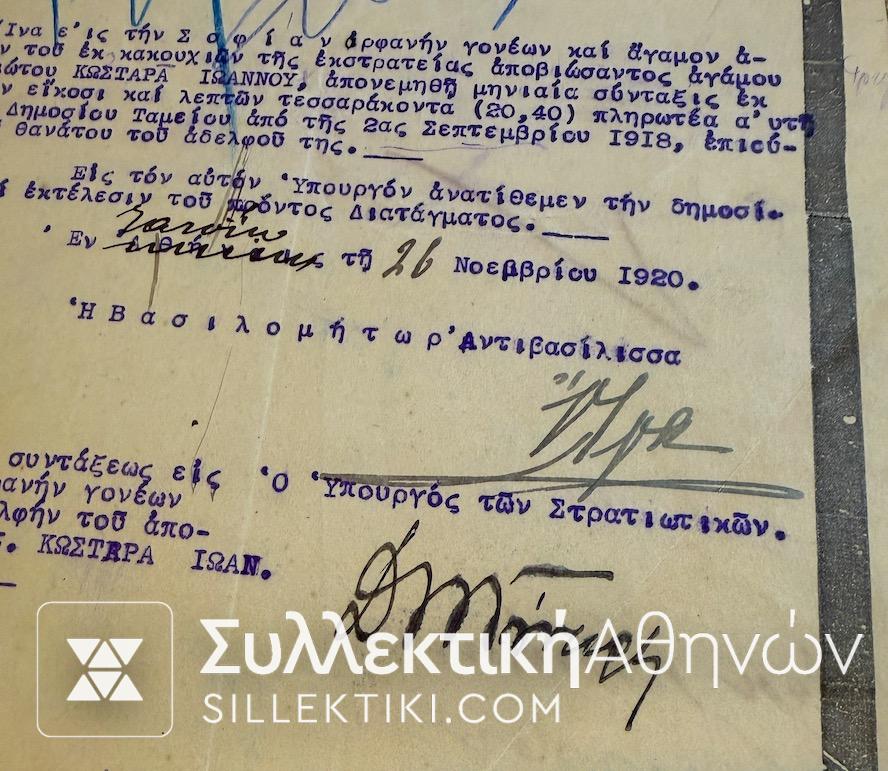 Ἵνα εἰς τήν Σ ο φ ί α ν ὀρφανήν γονέων καί ἄγαμον ἀ-
ν τοῦ ἐκ κακουχιῶν τῆς ἐκστρατείας ἀποβιώσαντος ἀγάμου
ώτου ΚΩΣΤΑΡΑ ΙΩΑΝΝΟΥ, ἀπονεμηθῇ μηνιαία σύνταξις ἐκ
ν εἴκοσι καί λεπτῶν τεσσαράκοντα (20,40) πληρωτέα α'υτῇ
Δημοσίου Ταμείου ἀπό τῆς 2ας Σεπτεμβρίου 1918, ἐπιού-
θανάτου τοῦ ἀδελφοῦ της.
Εἰς τόν αὐτόν Ὑπουργόν ἀνατίθεμεν τήν δημοσί-
ί ἐκτέλεσιν τοῦ πρόντος Διατάγματος.
Τατοΐῳ
Ἐν τῇ 26 Νοεμβρίου 1920.
Ἡ Β α σ ι λ ο μ ή τ ω ρ Ἀντιβασίλισσα
Ὄλγα
συντάξεως εἰς Ὁ Ὑπουργός τῶν Στρατιωτικῶν.
φανήν γονέων
λφήν τοῦ ἀπο-
. ΚΩΣΤΑΡΑ ΙΩΑΝ.
ΣυλλεκτικήΑθηνών
SILLEKTIKI.COM